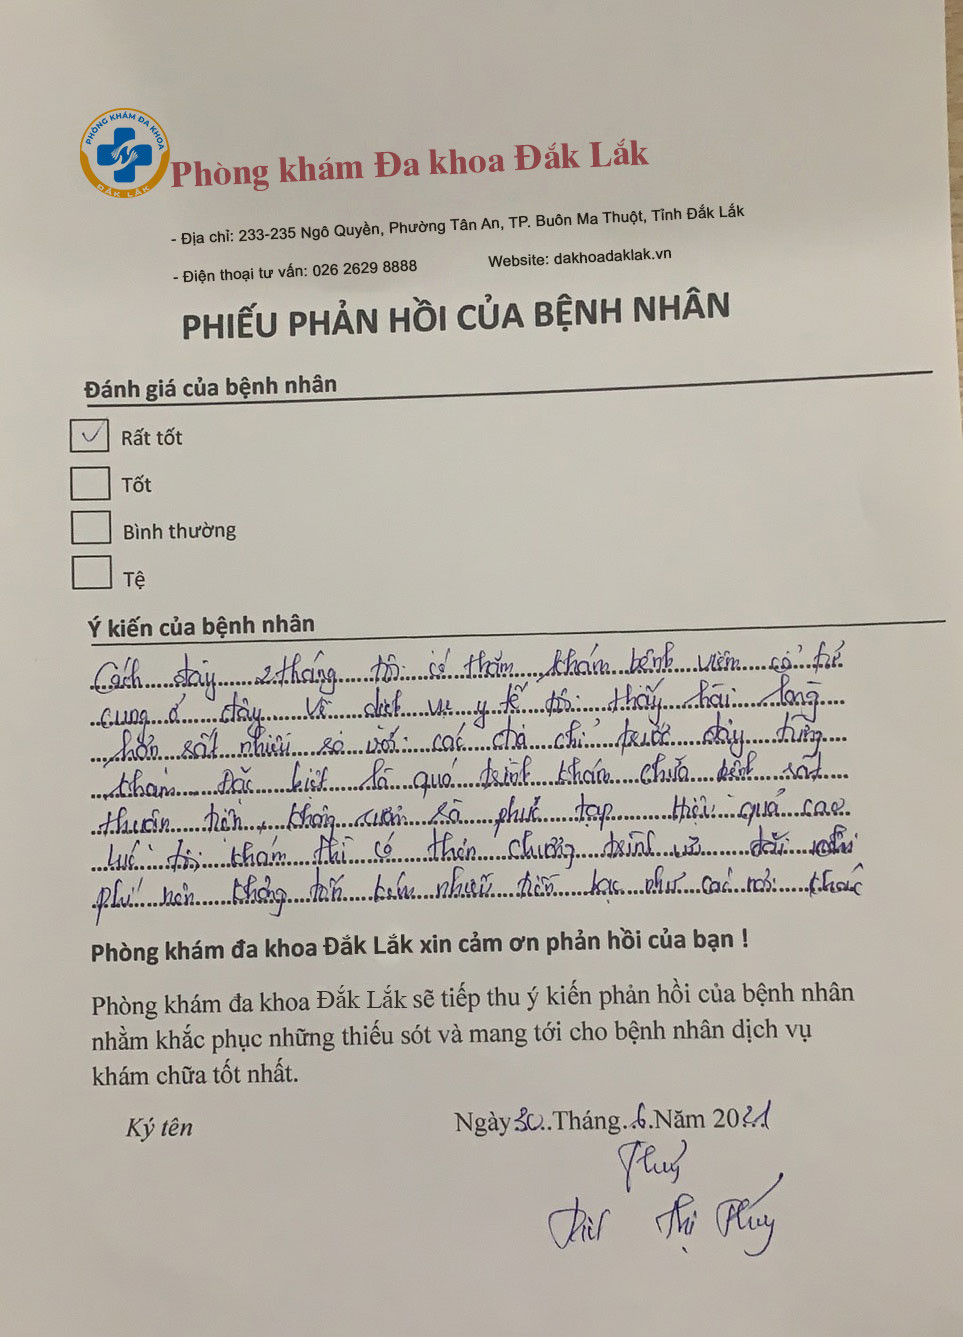 PHÒNG KHÁM ĐA KHOA
ĐẮK LẮK
Phòng khám Đa khoa Đắk Lắk
- Địa chỉ: 233-235 Ngô Quyền, Phường Tân An, TP. Buôn Ma Thuột, Tỉnh Đắk Lắk
- Điện thoại tư vấn: 026 2629 8888 Website: dakhoadaklak.vn
PHIẾU PHẢN HỒI CỦA BỆNH NHÂN
Đánh giá của bệnh nhân
Rất tốt
Tốt
Bình thường
Tệ
Ý kiến của bệnh nhân
Cách đây 2 tháng tôi có thăm khám bệnh viêm cổ tử
cung ở đây về dịch vụ y tế tôi thấy hài lòng
hơn rất nhiều so với các chỗ trước đây từng
khám. Đặc biệt là quá trình khám chữa bệnh rất
thuận tiện, không rườm rà phức tạp hiệu quả cao
lúc tôi khám thì có thêm chương trình ưu đãi
phí nên không tốn kém nhiều tiền bạc như các nơi khác
Phòng khám đa khoa Đắk Lắk xin cảm ơn phản hồi của bạn !
Phòng khám đa khoa Đắk Lắk sẽ tiếp thu ý kiến phản hồi của bệnh nhân
nhằm khắc phục những thiếu sót và mang tới cho bệnh nhân dịch vụ
khám chữa tốt nhất.
Ký tên Ngày 30 Tháng 6 Năm 2021
Thuý
Thị Thúy